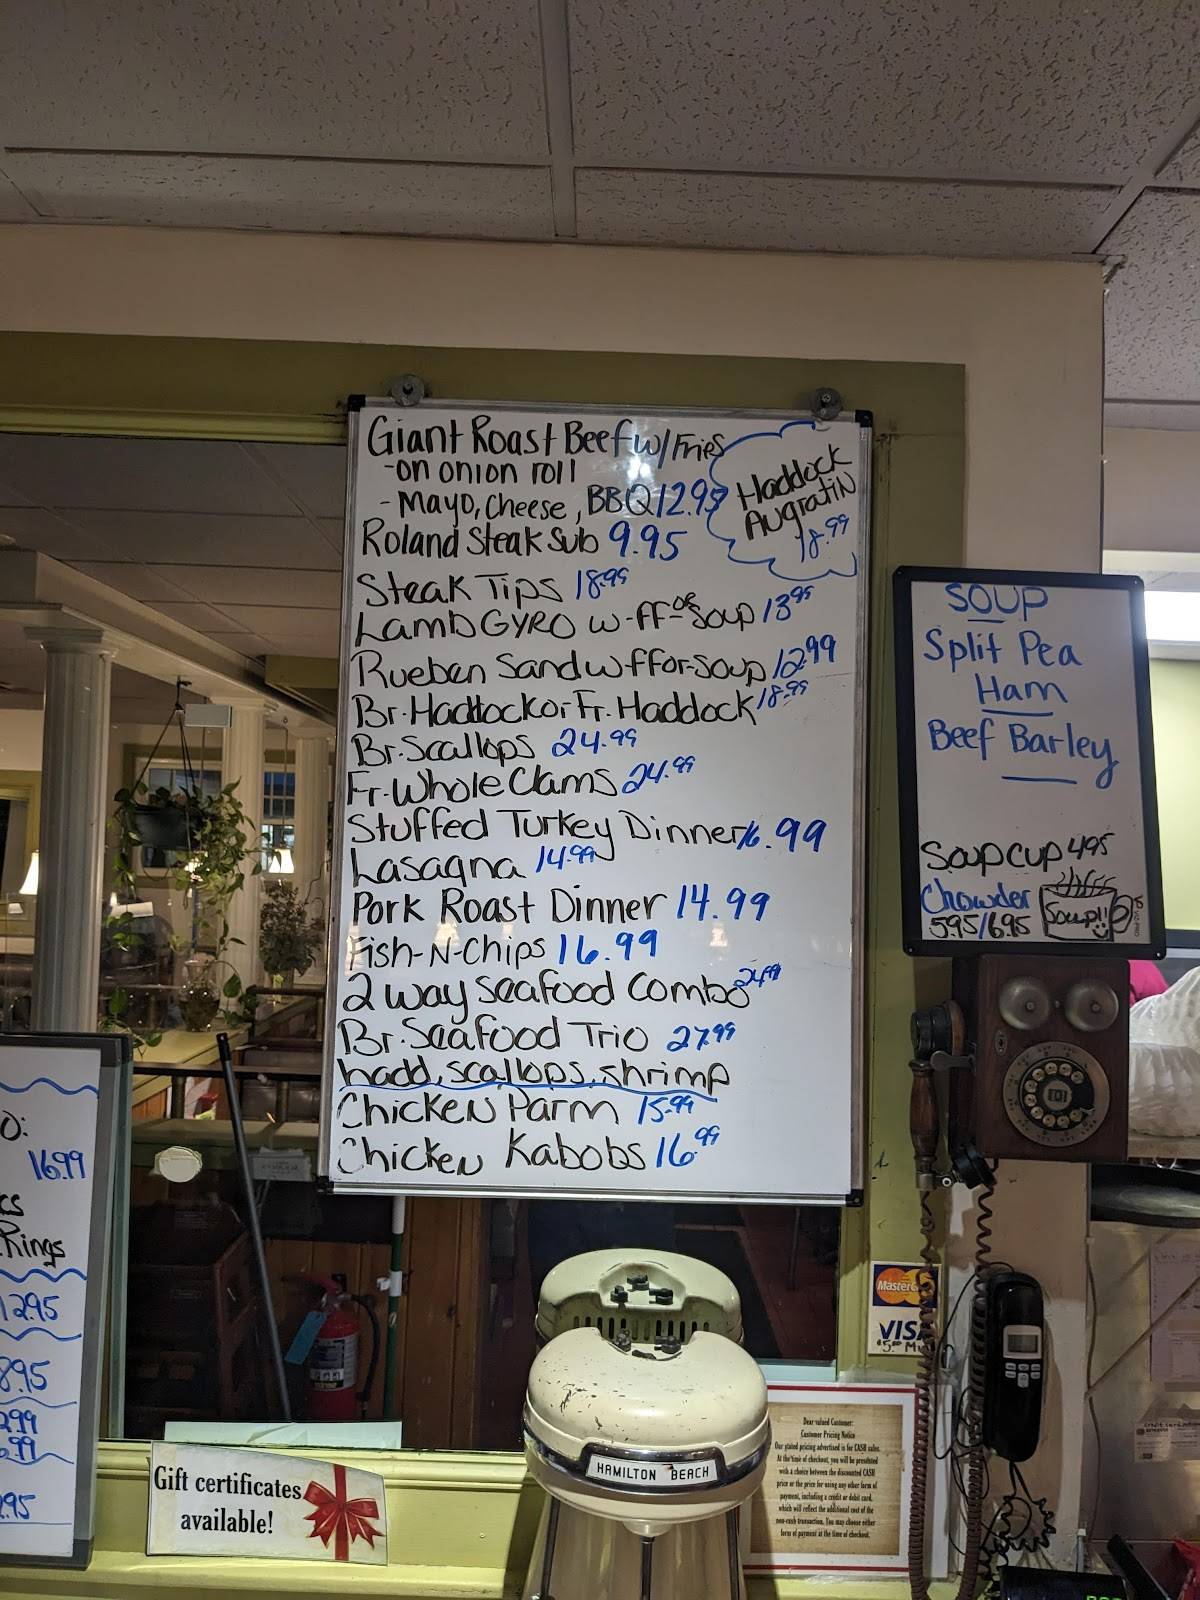 Giant Roast Beef w/Fries
-on onion roll
-Mayo, Cheese, BBQ 12.95
Haddock
Augratin
18.99
Roland Steak Sub 9.95
Steak Tips 18.99
Lamb GYRO w-ff or Soup 13.95
Rueben Sand w-ff or-soup 12.99
Br. Haddock or Fr. Haddock 18.99
Br. Scallops 24.99
Fr. Whole Clams 24.99
Stuffed Turkey Dinner 16.99
Lasagna 14.99
Pork Roast Dinner 14.99
Fish-N-Chips 16.99
2 way Seafood Combo 24.99
Br. Seafood Trio 27.99
hadd, scallops, shrimp
Chicken Parm 15.99
Chicken Kabobs 16.99
SOUP
Split Pea
Ham
Beef Barley
Soup cup 4.95
Chowder
5.95/6.95
Soup!!
O:
16.99
Rings
12.95
8.95
.99
.95
MasterC
VISA
Gift certificates
available!
HAMILTON BEACH
Dear valued Customer:
Customer Pricing Notice
Our stated pricing advertised is for CASH sales.
At the time of checkout, you will be presented
with a choice between the discounted CASH
price or the price for using any other form of
payment, including a credit or debit card,
which will reflect the additional cost of the
non-cash transaction. You may choose either
form of payment at the time of checkout.